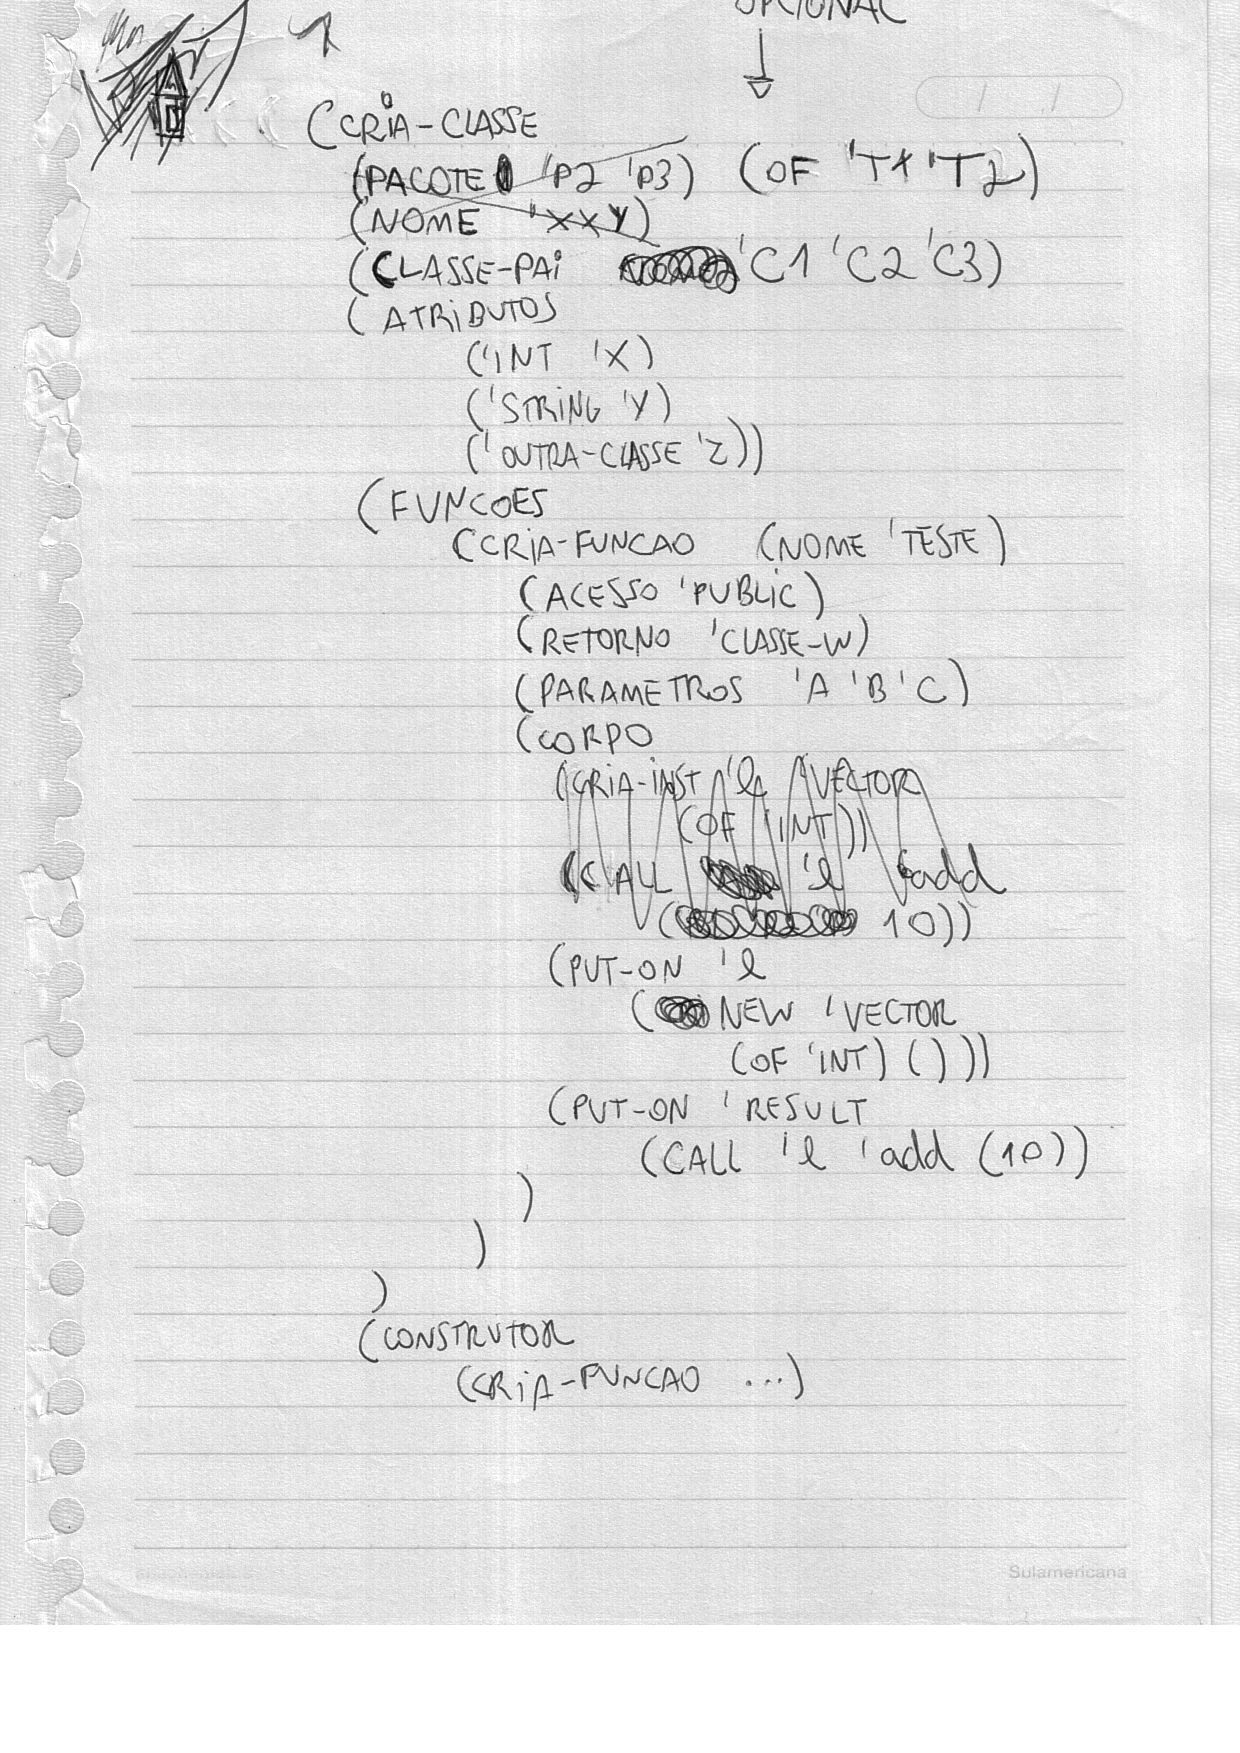 OPCIONAL
(CRIA-CLASSE
(PACOTE 'P2 'P3) (OF 'T1 'T2)
(NOME 'XXY)
(CLASSE-PAI 'C1 'C2 'C3)
(ATRIBUTOS
('INT 'X)
('STRING 'Y)
('OUTRA-CLASSE 'Z))
(FUNCOES
(CRIA-FUNCAO (NOME 'TESTE)
(ACESSO 'PUBLIC)
(RETORNO 'CLASSE-W)
(PARAMETROS 'A 'B 'C)
(CORPO
(CRIA-INST 'l 'VECTOR
(OF 'INT))
(CALL 'l 'add
( 10))
(PUT-ON 'l
(NEW 'VECTOR
(OF 'INT) ()))
(PUT-ON 'RESULT
(CALL 'l 'add (10))
)
)
)
(CONSTRUTOR
(CRIA-FUNCAO ...)
Sulamericana